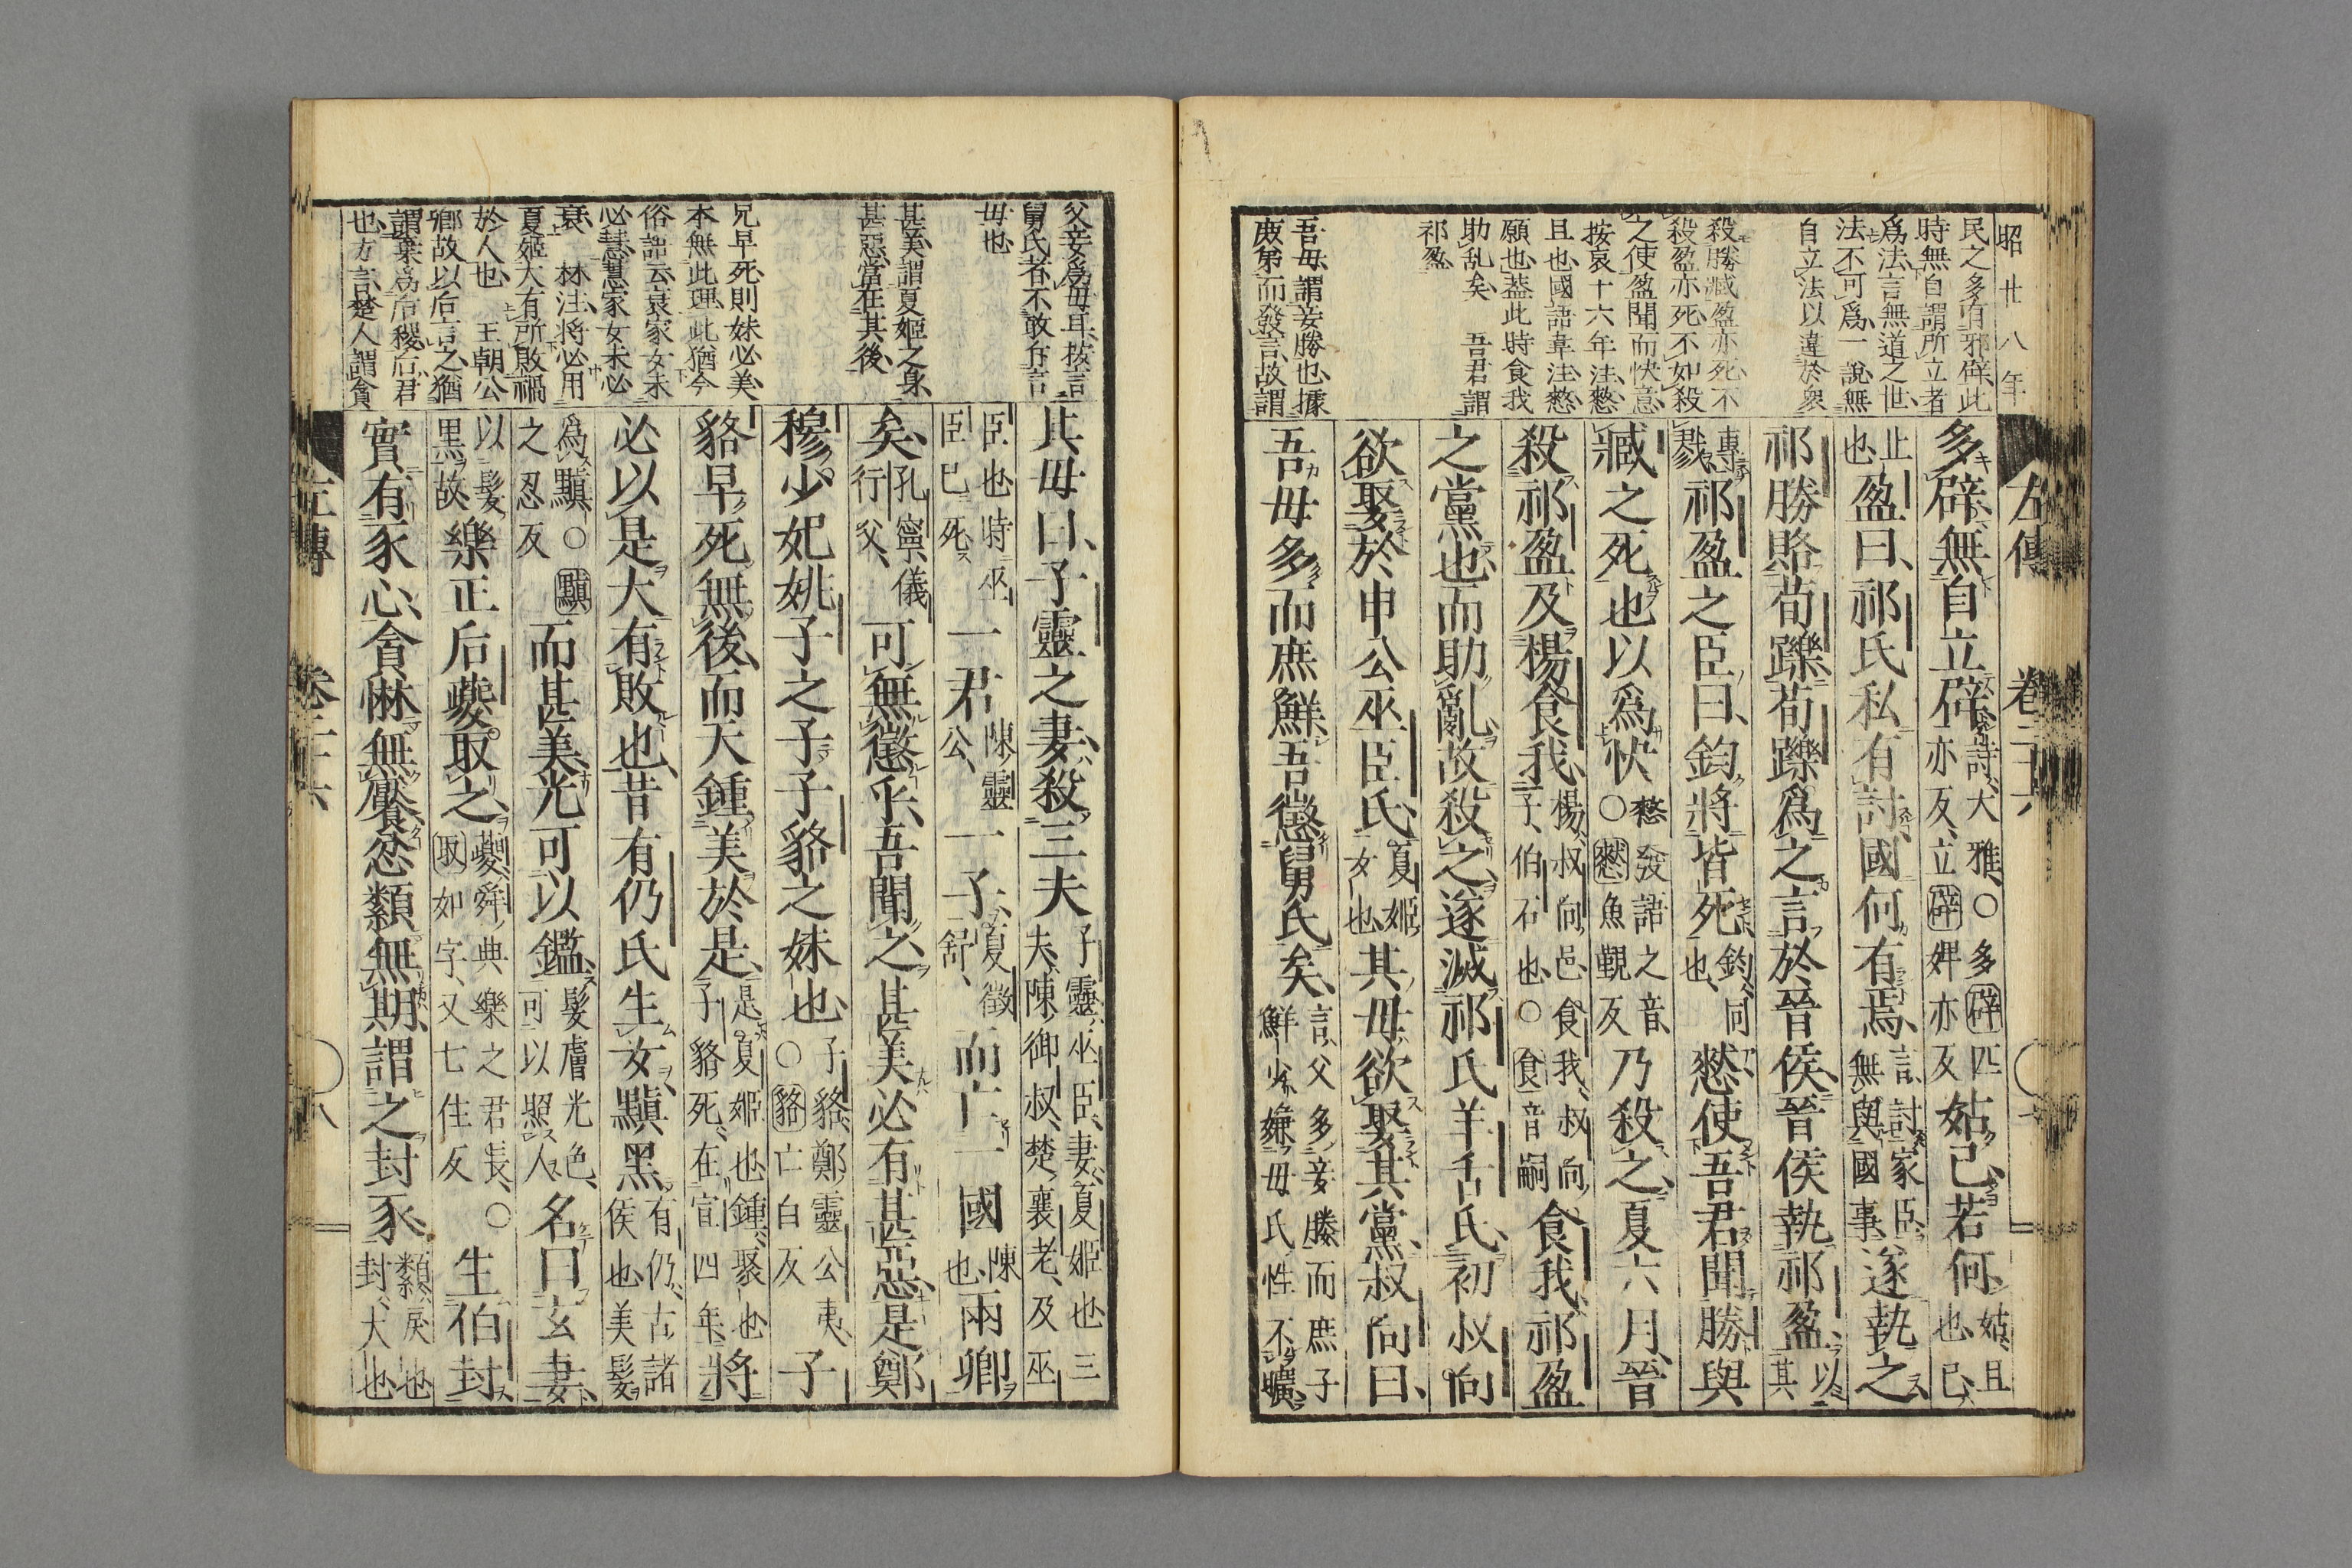 昭廿八年
左傳 卷二十六
民之多有邪辟此
時無自謂所立者
爲法言無道之世
法不可爲一說無
自立法以違於衆
殺勝臧盈亦死不
殺盈亦死不如殺
之使盈聞而快意
按哀十六年注憖
且也國語韋注憖
願也蓋此時食我
助乱矣 吾君謂
祁盈
吾毋謂妾勝也據
庻弟而發言故謂
多辟無自立辟詩大雅○多辟匹亦反立辟婢亦反姑已若何姑且也已
止也盈曰祁氏私有討國何有焉言討家臣無與國事遂執之
祁勝賂荀躒荀躒爲之言於晉侯晉侯執祁盈以其
專戮祁盈之臣曰鈞將皆死鈞同也憖使吾君聞勝與
臧之死也以爲快憖發語之音○憖魚覲反乃殺之夏六月晉
殺祁盈及楊食我楊叔向邑食我叔向子伯石也○食音嗣食我祁盈
之黨也而助亂故殺之遂滅祁氏羊舌氏初叔向
欲娶於申公巫臣氏夏姬女也其毋欲娶其黨叔向曰
吾毋多而庶鮮吾懲舅氏矣言父多妾媵而庶子鮮少嫌毋氏性不曠
父妾爲毋耳按言
舅氏者不敢斥言
毋也
甚美謂夏姬之身
甚惡當在其後
兄早死則妹必美
本無此理此猶今
俗語云哀家女未
必慧慧家女未必
衰 林注將必用
夏姬大有所敗禍
於人也 王朝公
卿故以后言之猶
謂棄爲后稷后君
也方言楚人謂貪
其毋曰子靈之妻殺三夫子靈巫臣妻夏姬也三夫陳御叔楚襄老及巫
臣也時巫臣已死一君陳靈公一子夏徵舒而亡一國陳也兩卿
矣孔寧儀行父可無懲乎吾聞之甚美必有甚惡是鄭
穆少妃姚子之子子貉之妹也子貉鄭靈公夷○貉亡白反子
貉早死無後而天鍾美於是是夏姬也鍾聚也子貉死在宣四年將
必以是大有敗也昔有仍氏生女黰黑有仍古諸侯也美髮
爲黰○黰之忍反而甚美光可以鑑髮膚光色可以照人名曰玄妻
以髮黑故樂正后夔取之夔舜典樂之君長○取如字又七住反生伯封
實有豕心貪惏無饜忿纇無期謂之封豕纇戾也封大也
左傳 卷二十六 八